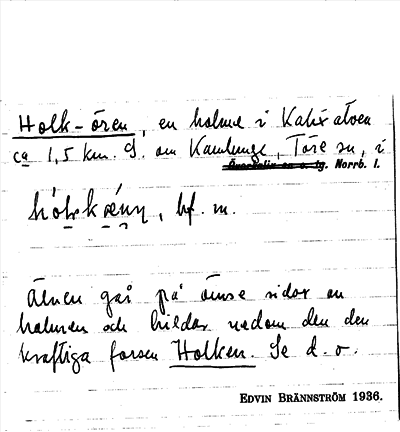 Holk-ören, en holme i Kalixälven
ca 1,5 km. S. om Kamlunge, Töre sn, i
Överkalix sn o. tg. Norrb. l.
bf. m.
Älven går på ömse sidor om
holmen och bildar nedom den den
kraftiga forsen Holken. Se d. o.
EDVIN BRÄNNSTRÖM 1936.